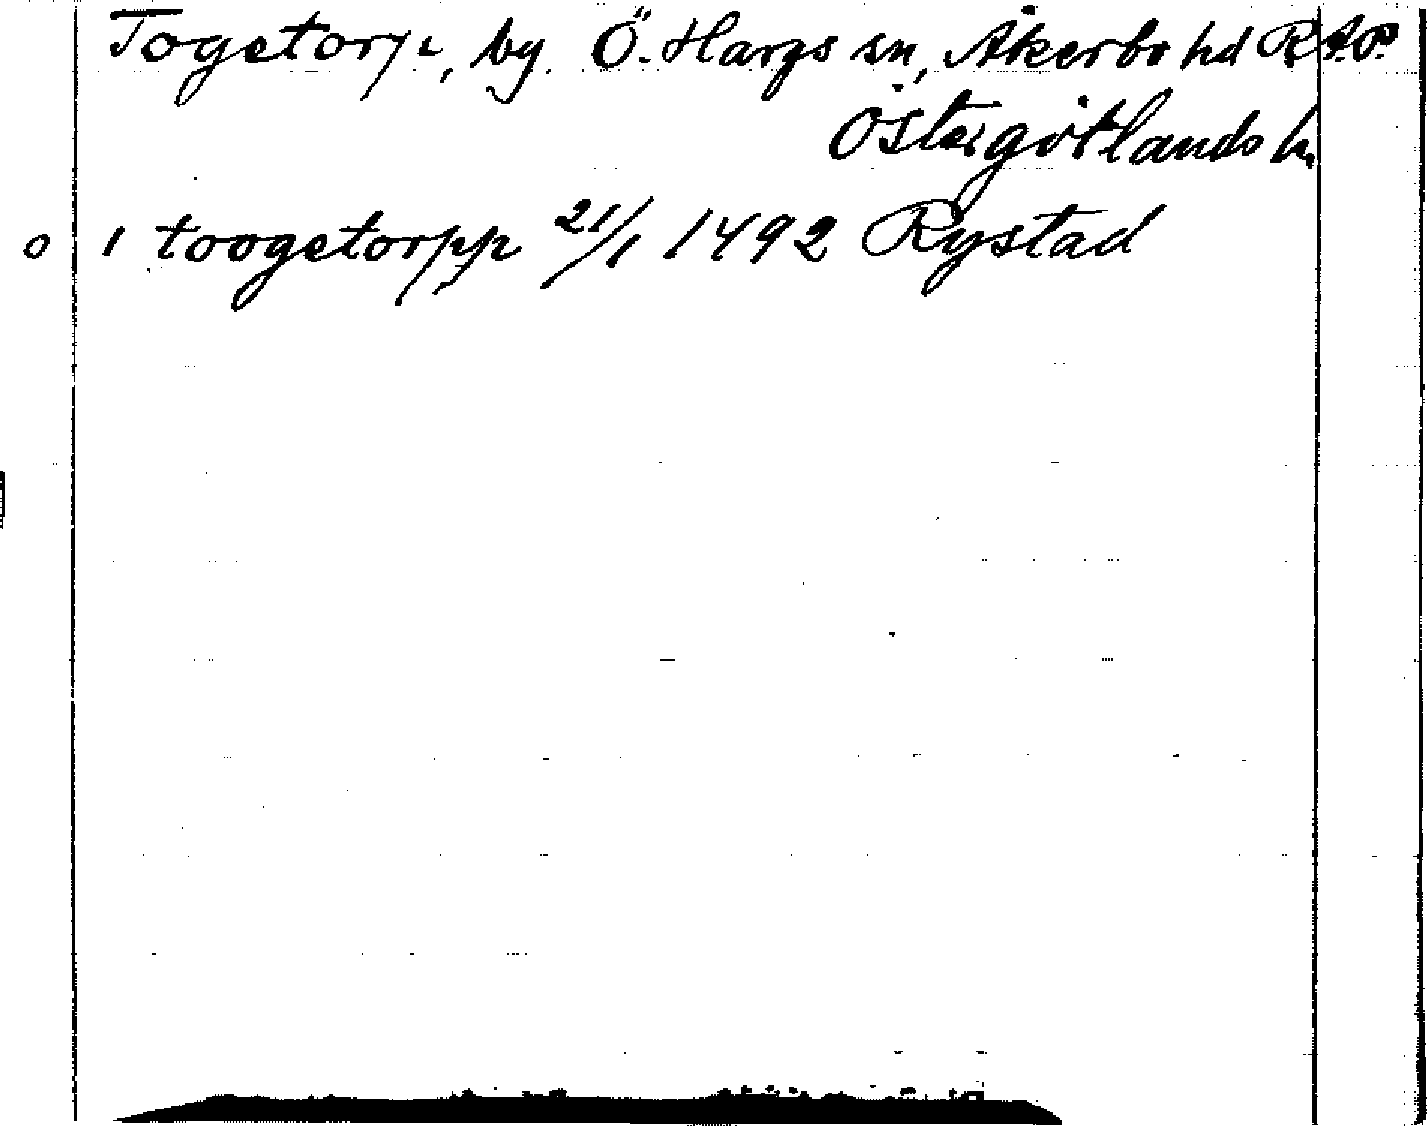 Togetorp, by. Ö. Hargs sn, Åkerbo hd R.A.P.
Östergötlands l.
o i toogetorpp 21/1 1492 Rystad